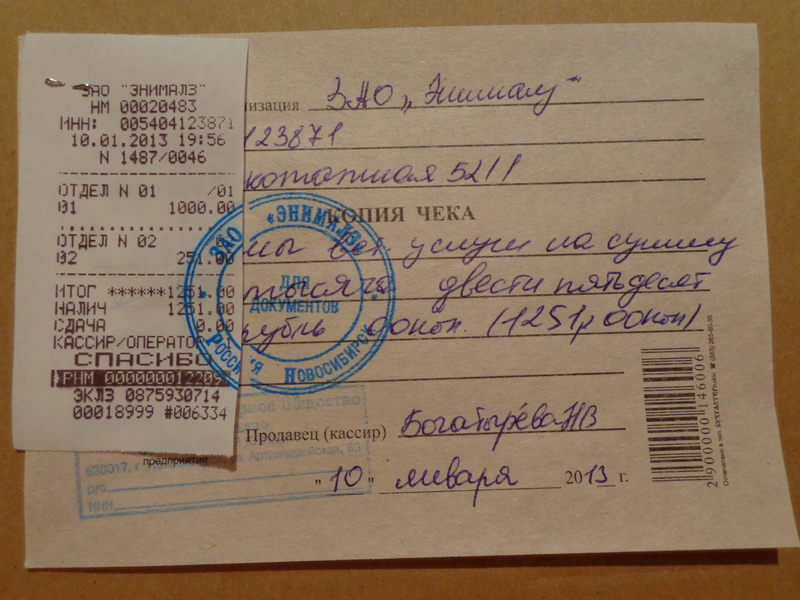 ЗАО "ЭНИМАЛЗ"
НМ 00020483
ИНН: 005404123871
10.01.2013 19:56
N 1487/0046
ОТДЕЛ N 01 /01
01 1000.00
ОТДЕЛ N 02
02 251.00
ИТОГ ******1251.00
НАЛИЧ 1251.00
СДАЧА 0.00
КАССИР/ОПЕРАТОР
СПАСИБО
РНМ 000000012209
ЭКЛЗ 0875930714
00018999 #006334
низация ЗАО „Энималз"
123871
5211
КОПИЯ ЧЕКА
вет. услуги на сумму
тысяча двести пятьдесят
рубль 00коп. (1251р 00коп)
ЗАО «ЭНИМАЛЗ»
ДЛЯ
ДОКУМЕНТОВ
РОССИЯ НОВОСИБИРСК
Продавец (кассир) Богатырёва НВ
предприятия
630017, г
р/с
ИНН
"10" января 2013 г.
2 900000 146006